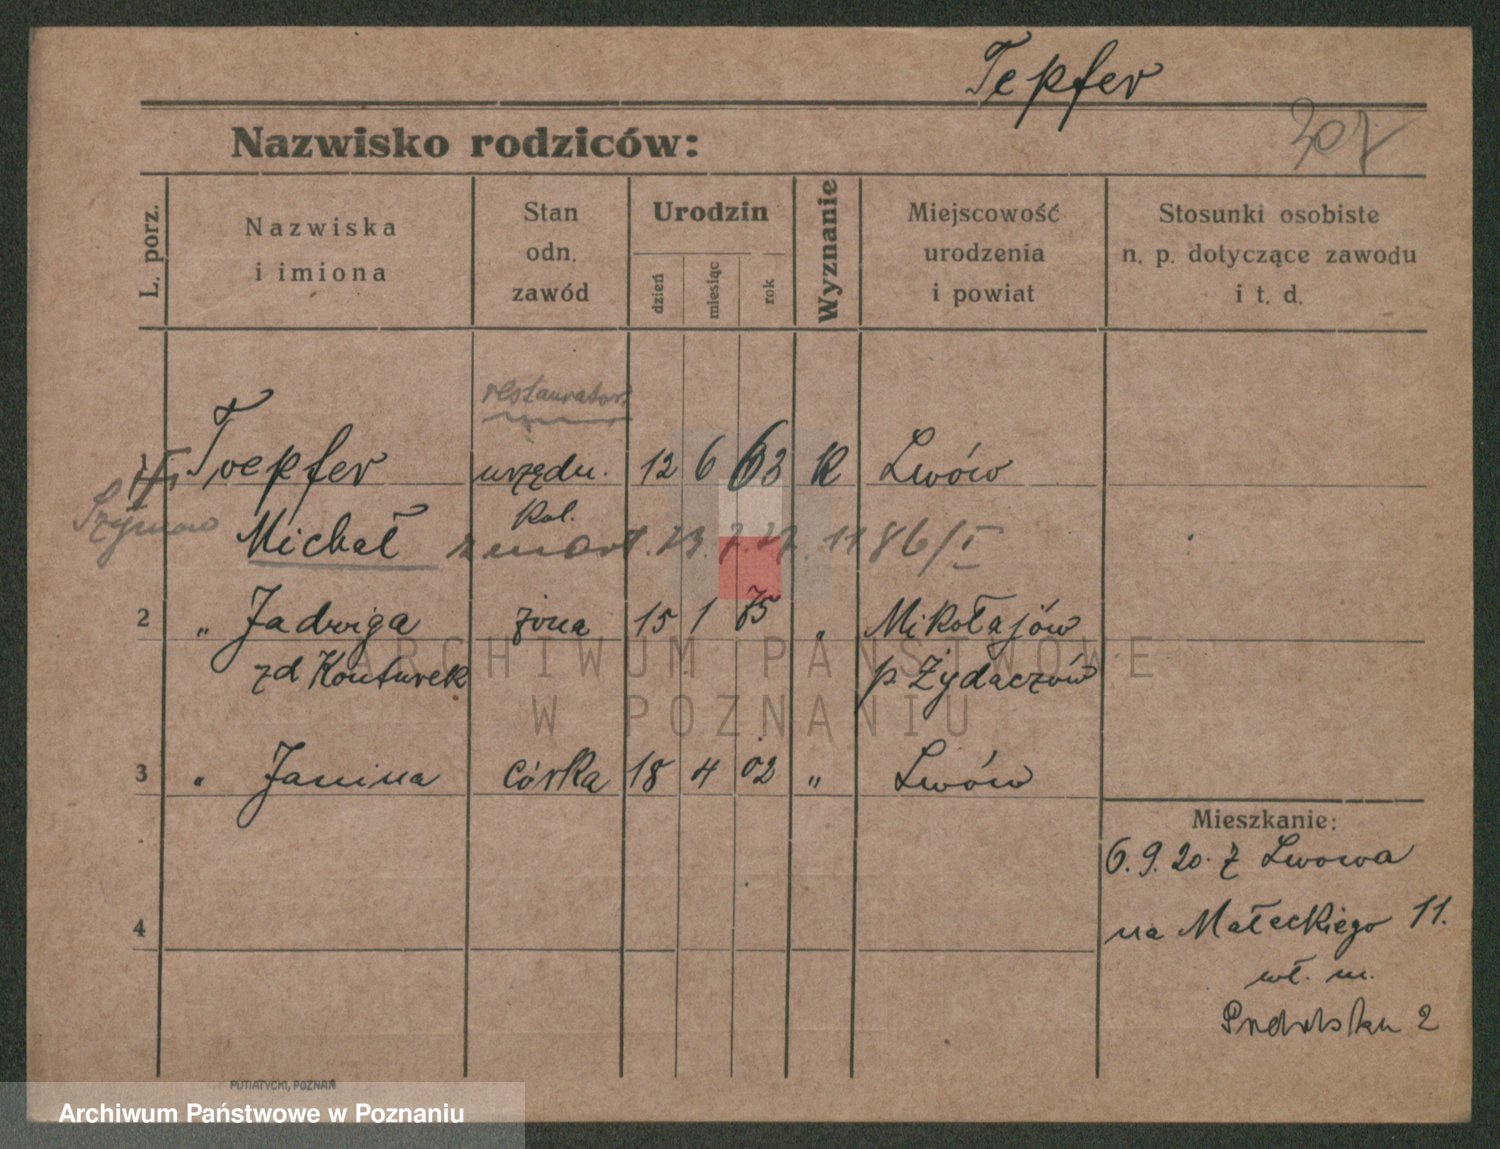 Tepfer
Nazwisko rodziców:
L. porz.
Nazwiska
i imiona
Stan
odn.
zawód
Urodzin
dzień
miesiąc
rok
Wyznanie
Miejscowość
urodzenia
i powiat
Stosunki osobiste
n. p. dotyczące zawodu
i t. d.
restaurator
Toepfer urzędn. 12 6 63 R Lwów
kol.
Szymon
Michał zmarł. 23.7.27. 1186/I
2 „ Jadwiga żona 15 1 75 „ Mikołajów
zd Konturek p. Żydaczów
3 „ Janina córka 18 4 02 „ Lwów
Mieszkanie:
6.9.20. z Lwowa
4
na Małeckiego 11.
wł. m.
2
PUTIATYCKI, POZNAŃ
ARCHIWUM PAŃSTWOWE
W POZNANIU
Archiwum Państwowe w Poznaniu